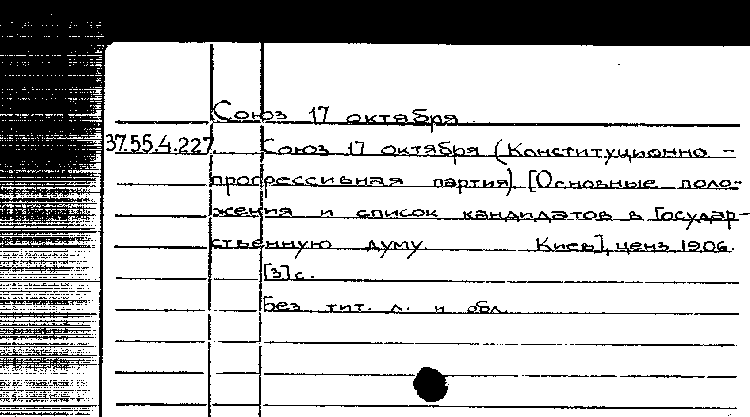 Союз 17 октября
37.55.4.227. Союз 17 октября (Конституционно -
прогрессивная партия). [Основные поло-
жения и список кандидатов в Государ-
ственную думу. Киев], ценз. 1906.
[3] с.
Без тит. л. и обл.